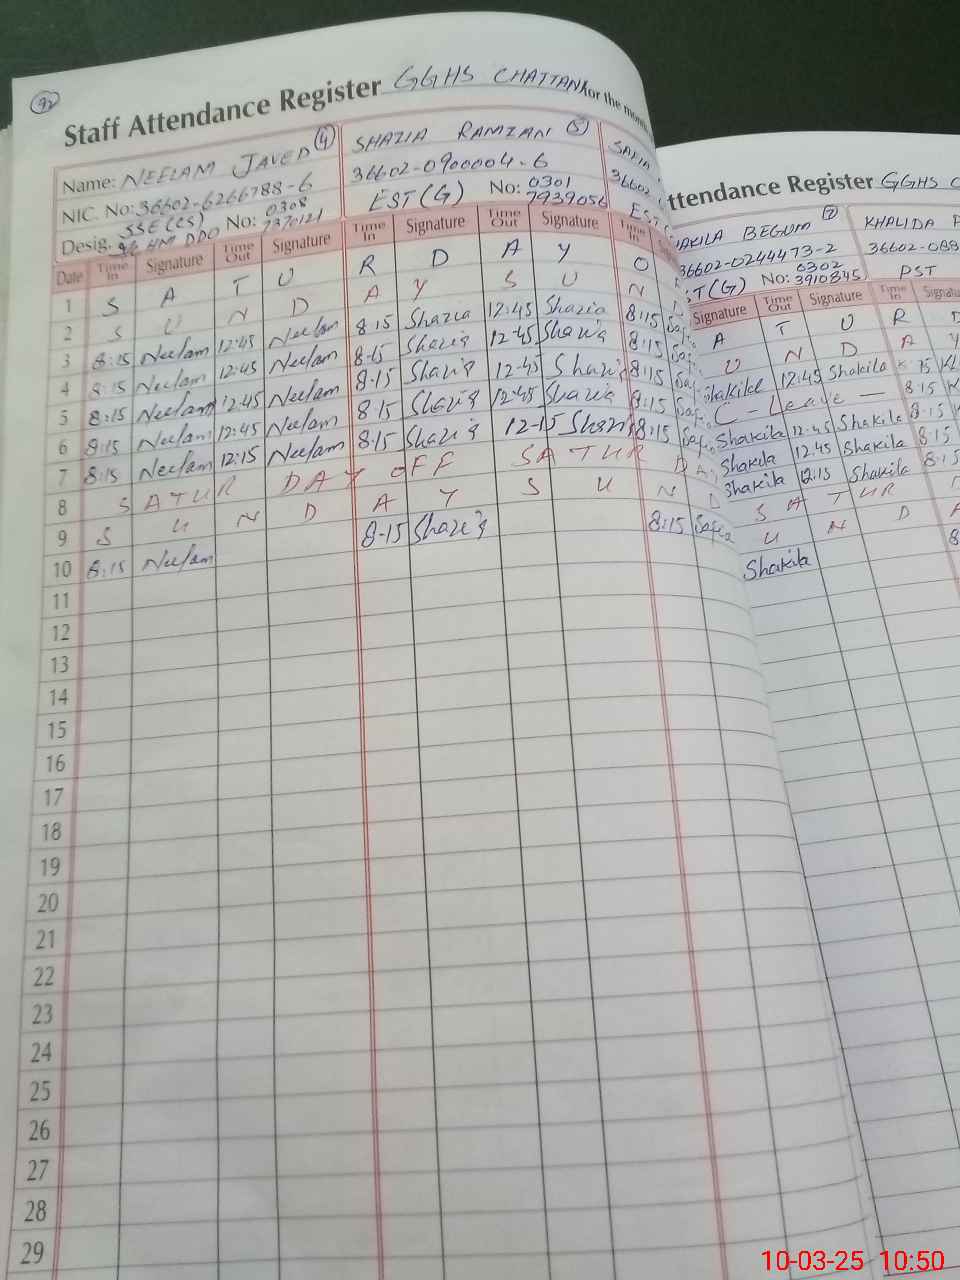 92
Staff Attendance Register GGHS CHATTAN for the month
Name: NEELAM JAVED (4) SHAZIA RAMZAN (5)
NIC. No: 36602-6266788-6 36602-0900004-6 36602
Desig. SSE (CS) No: 0308 7370121 EST (G) No: 0301 7939056 EST
DDO
Date Time In Signature Time Out Signature Time In Signature Time Out Signature Time In
1 S A T U R D A Y
2 S U N D A Y S U N
3 8:15 Neelam 12:45 Neelam 8:15 Shazia 12:45 Shazia 8:15
4 8:15 Neelam 12:45 Neelam 8-15 Shazia 12-45 Shazia 8:15
5 8:15 Neelam 12:45 Neelam 8-15 Shazia 12-45 Shazia 8:15
6 8:15 Neelam 12:45 Neelam 8-15 Shazia 12:45 Shazia 8:15
7 8:15 Neelam 12:15 Neelam 8:15 Shazia 12-15 Shazia 8:15
8 SATURDAY OFF SATUR DA
9 S U N D A Y S U N D
10 8:15 Neelam 8-15 Shazia 8:15 Safia
11
12
13
14
15
16
17
18
19
20
21
22
23
24
25
26
27
28
29
ttendance Register GGHS C
AKILA BEGUM (7) KHALIDA P
36602-0244473-2 36602-088
ST (G) No: 0302 3910845 PST
Signature Time Out Signature Time In Signatu
A T U R D
U N D A Y
Shakila 12:45 Shakila
C - Leave - 8:15
Shakila 12:45 Shakila 8-15
Shakila 12.45 Shakila 8:15
Shakila 12:15 Shakila 8:15
S A T UR D
U N D A
Shakila 8
10-03-25 10:50